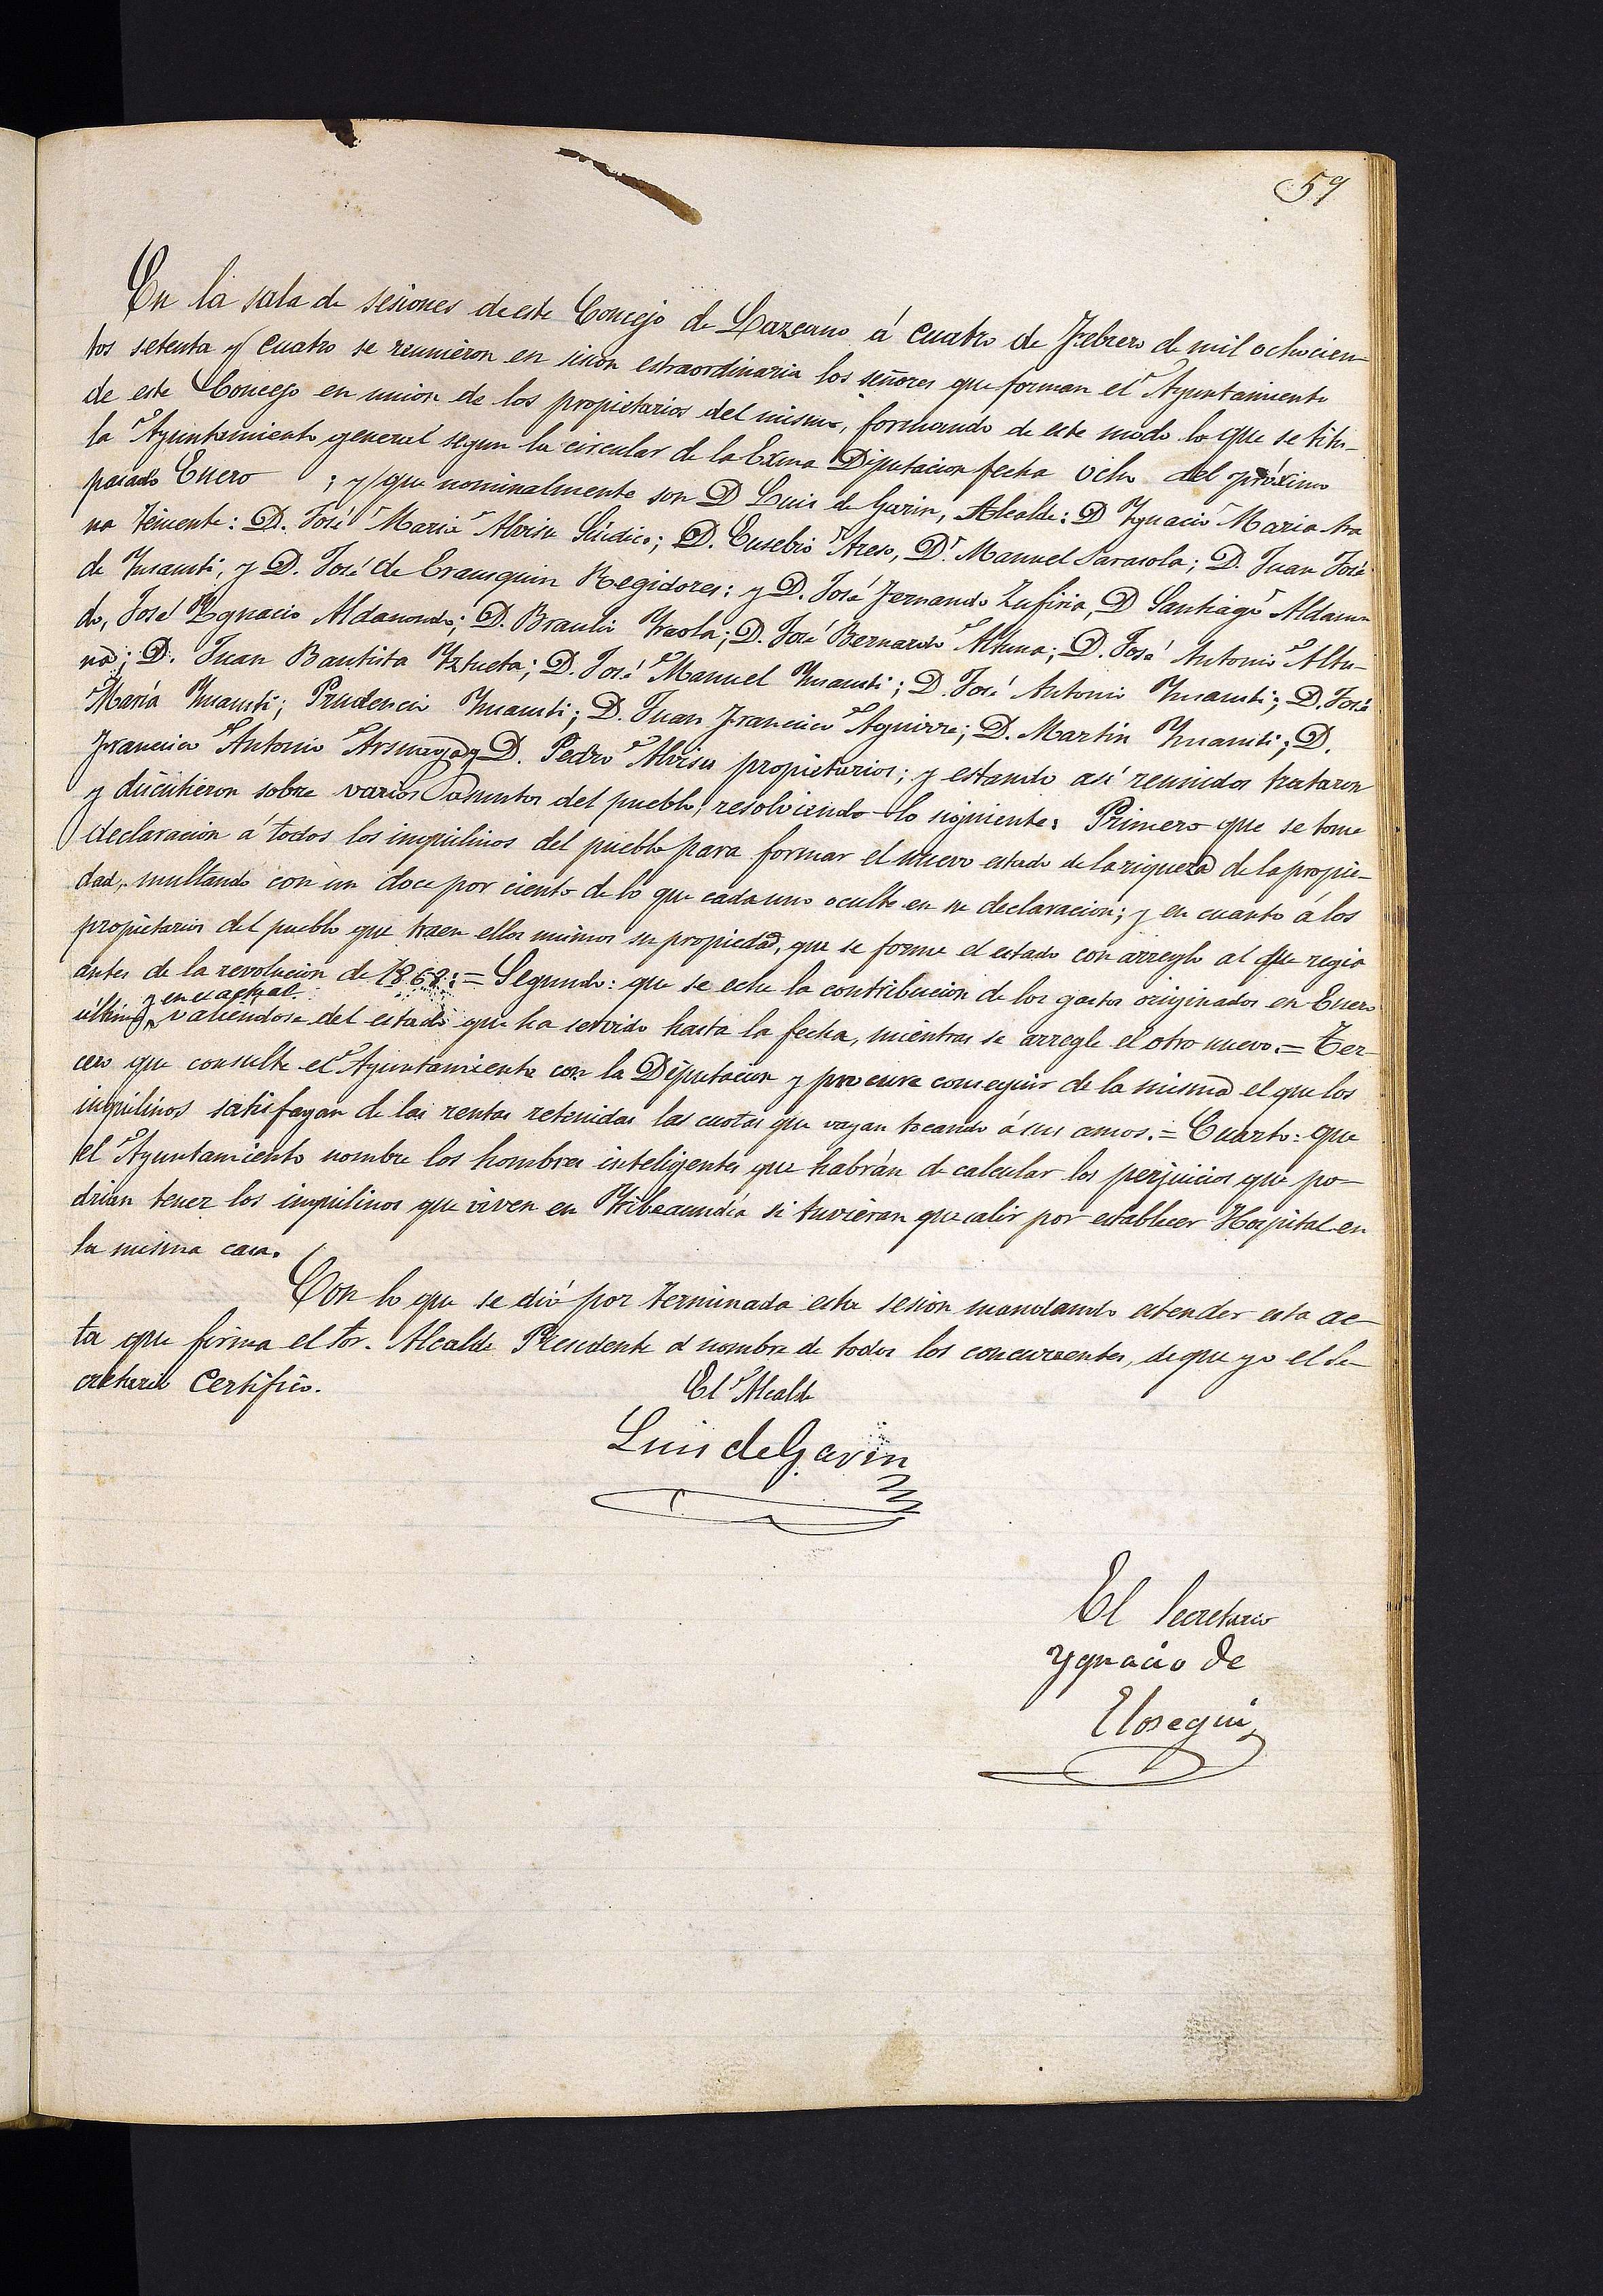 59
En la sala de sesiones de este Concejo de Lazcano á cuatro de Febrero de mil ochocien-
tos setenta y cuatro se reunieron en sision estraordinaria los señores que forman el Ayuntamiento
de este Concejo en union de los propietarios del mismo, formando de este modo lo que se titu-
la Ayuntamiento general segun la circular de la Exma Diputacion fecha ocho del próximo
pasado Enero ; y que nominalmente son D Luis de Garin, Alcalde: D Ygnacio Maria Ara
na Teniente: D. José Maria Aloisu Síndico; D. Eusebio Areso, D. Manuel Sarasola; D. Juan José
de Ynsausti, y D. José de Erausquin Regidores: y D. José Fernando Zufiria, D Santiago Aldasoro
do, José Ygnacio Aldanondo; D. Braulio Yraola; D. José Bernardo Altuna; D. José Antonio Altu-
na; D. Juan Bautista Yztueta; D. José Manuel Ynsausti; D. José Antonio Ynsausti; D. José
María Ynsausti; Prudencio Ynsausti; D. Juan Francisco Aguirre; D. Martin Ynsausti; D.
Francisco Antonio y D. Pedro Aloisu propietarios; y estando así reunidos trataron
y discutieron sobre varios asuntos del pueblo, resolviendo lo siguiente: Primero que se tome
declaracion á todos los inquilinos del pueblo para formar el nuevo estado de la riqueza de la propie-
dad, multando con un doce por ciento de lo que cada uno oculte en su declaracion; y en cuanto á los
propietarios del pueblo que traen ellos mismos su propiedad, que se forme el estado con arreglo al que regia
antes de la revolucion de 1868: = Segundo: que se eche la contribucion de los gastos originados en Enero
y en el actual
último valiendose del estado que ha servido hasta la fecha, mientras se arregle el otro nuevo. = Ter-
cero que consulte el Ayuntamiento con la Diputacion y procure conseguir de la misma el que los
inquilinos satisfagan de las rentas retenidas las cuotas que vayan tocando á sus amos. = Cuarto: que
el Ayuntamiento nombre los hombres inteligentes que habrán de calcular los perjuicios que po-
drian tener los inquilinos que viven en si tuvieran que salir por establecer Hospital en
la misma casa.
Con lo que se dió por terminada esta sesion mandando estender esta ac-
ta que firma el Sor. Alcalde Presidente á nombre de todos los concurrentes, de que yo el Se-
cretario Certifico.
El Alcalde
Luis de Garin
El Secretario
Ygnacio de
Elosegui